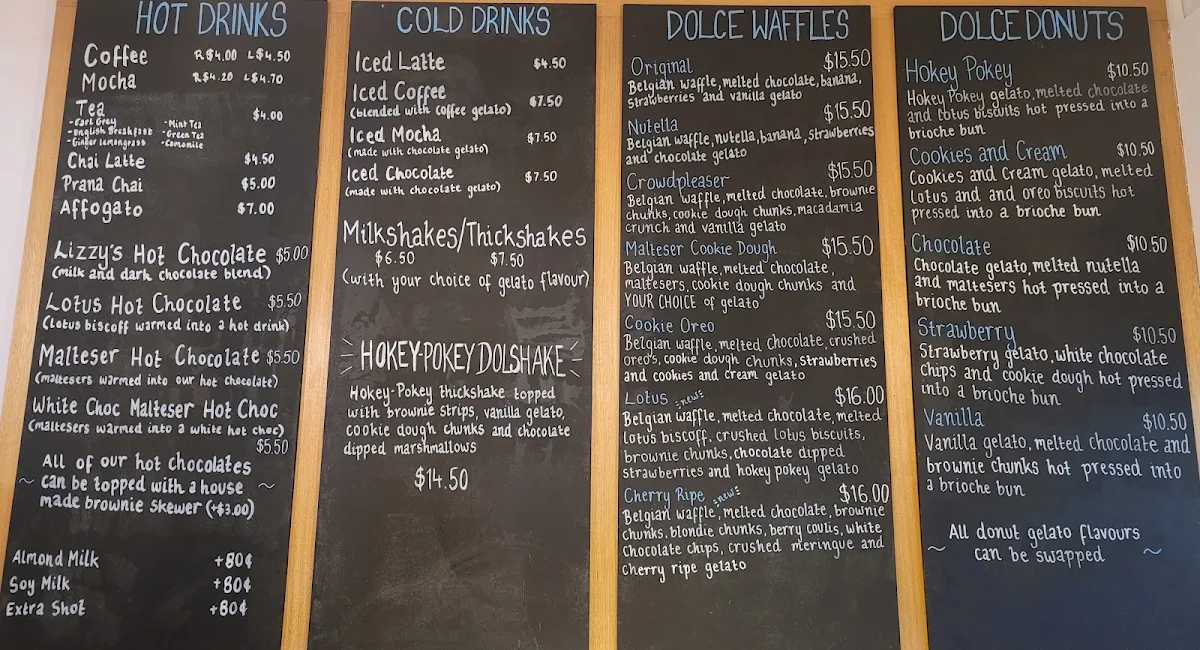 HOT DRINKS
Coffee R$4.00 L$4.50
Mocha R$4.20 L$4.70
Tea $4.00
-Earl Grey -Mint Tea
-English Breakfast -Green Tea
-Ginger Lemongrass -Camomile
Chai Latte $4.50
Prana Chai $5.00
Affogato $7.00
Lizzy's Hot Chocolate $5.00
(milk and dark chocolate blend)
Lotus Hot Chocolate $5.50
(lotus biscoff warmed into a hot drink)
Malteser Hot Chocolate $5.50
(maltesers warmed into our hot chocolate)
White Choc Malteser Hot Choc
(maltesers warmed into a white hot choc)
$5.50
All of our hot chocolates
~ can be topped with a house ~
made brownie skewer (+$3.00)
Almond Milk +80¢
Soy Milk +80¢
Extra Shot +80¢
COLD DRINKS
Iced Latte $4.50
Iced Coffee
(blended with coffee gelato) $7.50
Iced Mocha $7.50
(made with chocolate gelato)
Iced Chocolate $7.50
(made with chocolate gelato)
Milkshakes/Thickshakes
$6.50 $7.50
(with your choice of gelato flavour)
HOKEY-POKEY DOLSHAKE
Hokey-Pokey thickshake topped
with brownie strips, vanilla gelato,
cookie dough chunks and chocolate
dipped marshmallows
$14.50
DOLCE WAFFLES
Original $15.50
Belgian waffle, melted chocolate, banana,
strawberries and vanilla gelato
Nutella $15.50
Belgian waffle, nutella, banana, strawberries
and chocolate gelato
Crowdpleaser $15.50
Belgian waffle, melted chocolate, brownie
chunks, cookie dough chunks, macadamia
crunch and vanilla gelato
Malteser Cookie Dough $15.50
Belgian waffle, melted chocolate,
maltesers, cookie dough chunks and
YOUR CHOICE of gelato
Cookie Oreo $15.50
Belgian waffle, melted chocolate, crushed
oreo's, cookie dough chunks, strawberries
and cookies and cream gelato
Lotus new $16.00
Belgian waffle, melted chocolate, melted
lotus biscoff, crushed lotus biscuits,
brownie chunks, chocolate dipped
strawberries and hokey pokey gelato
Cherry Ripe new $16.00
Belgian waffle, melted chocolate, brownie
chunks, blondie chunks, berry coulis, white
chocolate chips, crushed meringue and
cherry ripe gelato
DOLCE DONUTS
Hokey Pokey $10.50
Hokey Pokey gelato, melted chocolate
and lotus biscuits hot pressed into a
brioche bun
Cookies and Cream $10.50
Cookies and Cream gelato, melted
lotus and and oreo biscuits hot
pressed into a brioche bun
Chocolate $10.50
Chocolate gelato, melted nutella
and maltesers hot pressed into a
brioche bun
Strawberry $10.50
Strawberry gelato, white chocolate
chips and cookie dough hot pressed
into a brioche bun
Vanilla $10.50
Vanilla gelato, melted chocolate and
brownie chunks hot pressed into
a brioche bun
All donut gelato flavours
~ can be swapped ~